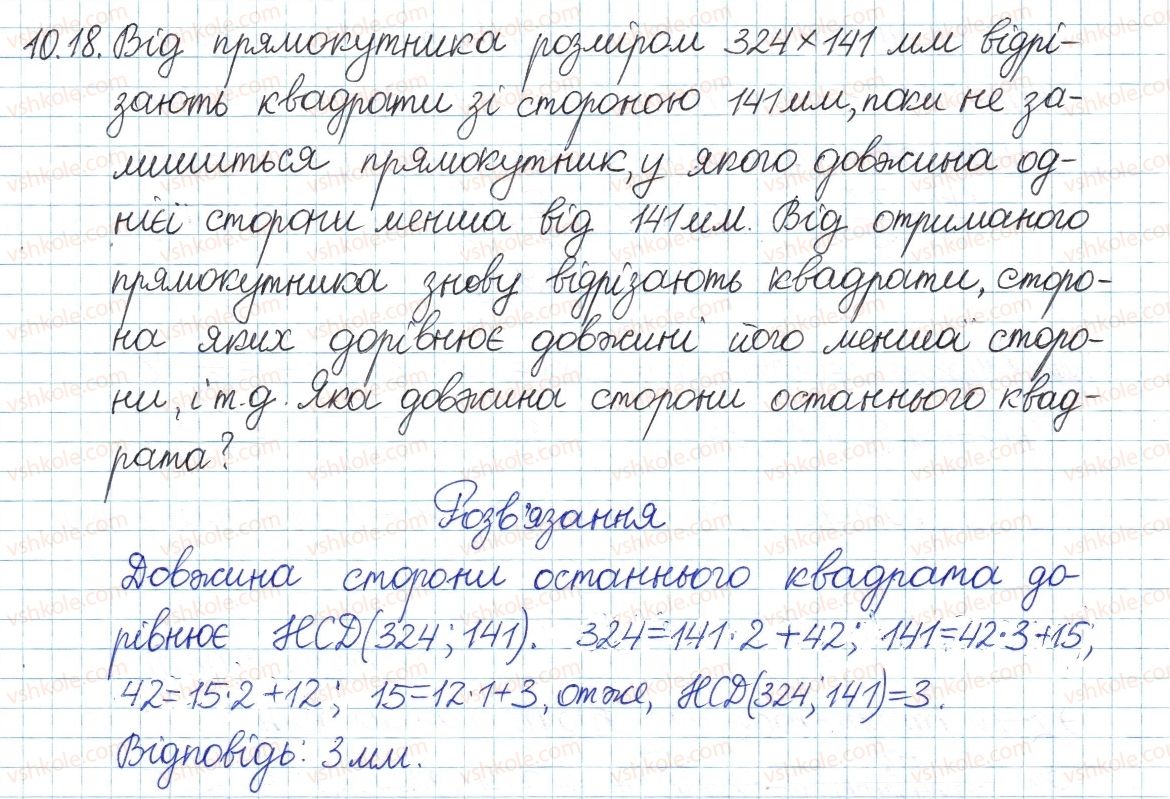 10.18. Від прямокутника розміром 324×141 мм відрі-
зають квадрати зі стороною 141 мм, поки не за-
лишиться прямокутник, у якого довжина од-
нієї сторони менша від 141 мм. Від отриманого
прямокутника знову відрізають квадрати, сторо-
на яких дорівнює довжині його меншої сторо-
ни, і т.д. Яка довжина сторони останнього квад-
рата?
Розв'язання
Довжина сторони останнього квадрата до-
рівнює НСД(324; 141). 324=141·2+42; 141=42·3+15;
42=15·2+12; 15=12·1+3, отже, НСД(324; 141)=3.
Відповідь: 3 мм.